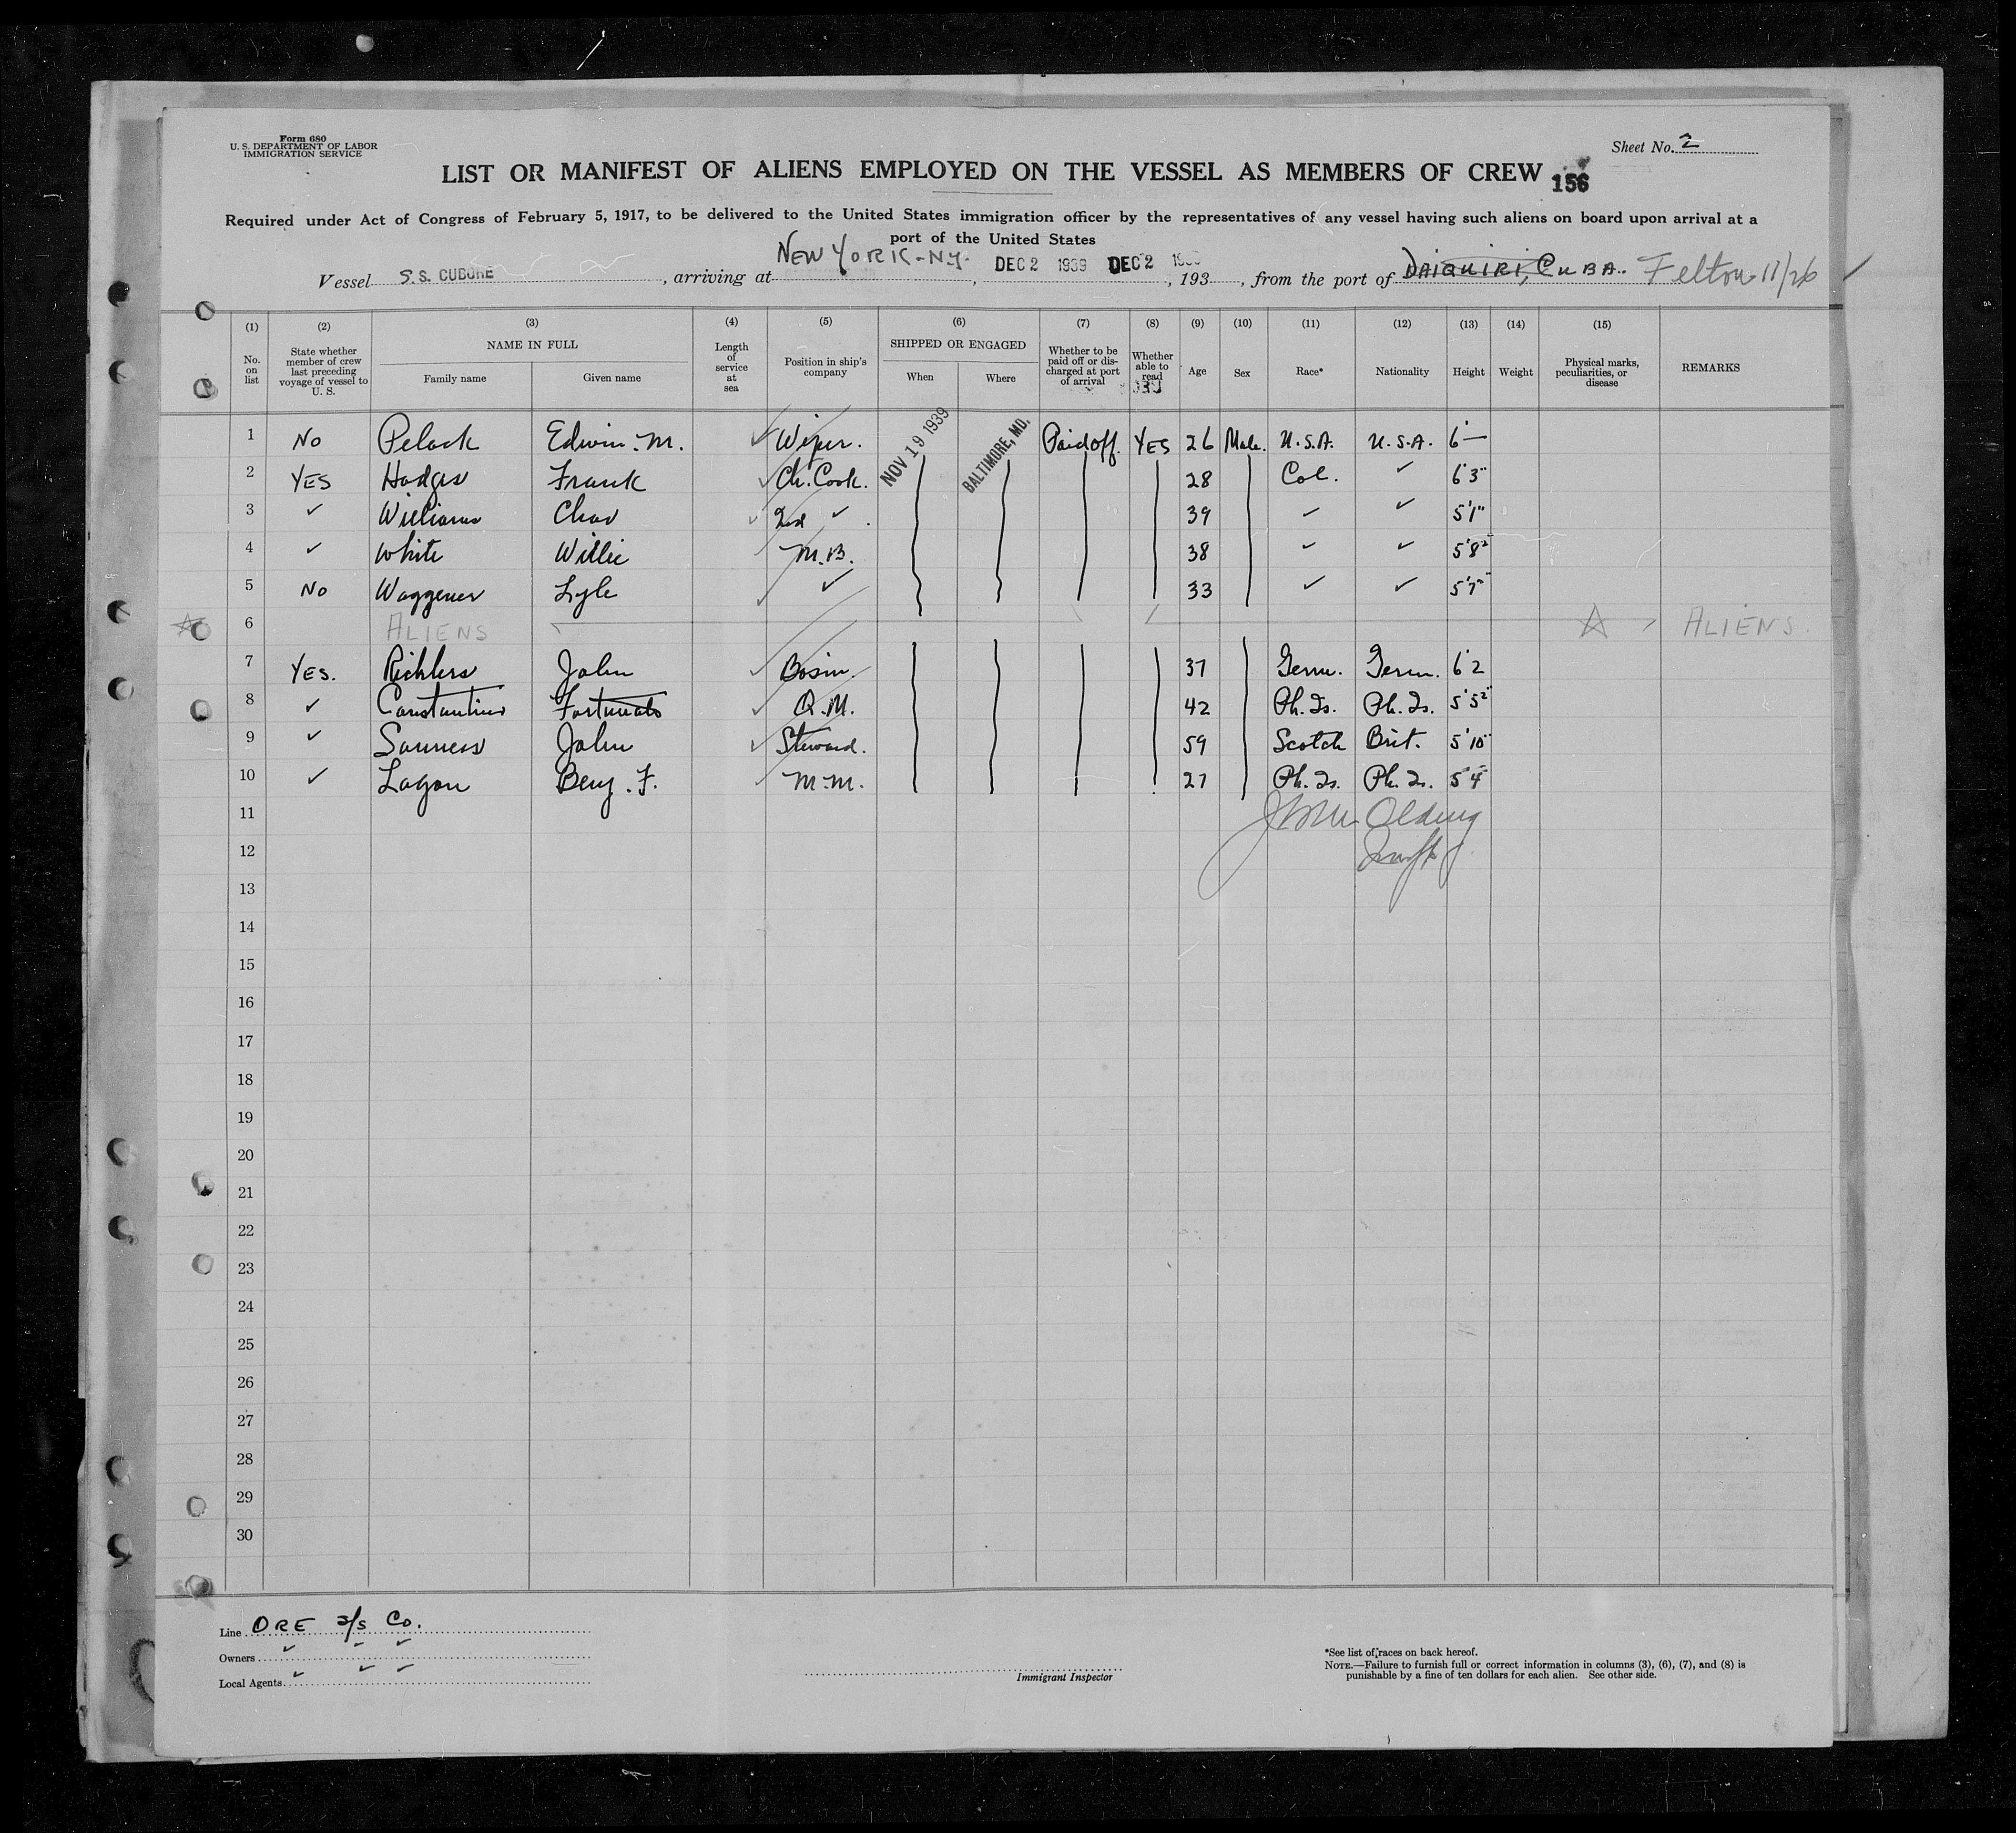 Form 680
U. S. DEPARTMENT OF LABOR
IMMIGRATION SERVICE
Sheet No. 2
LIST OR MANIFEST OF ALIENS EMPLOYED ON THE VESSEL AS MEMBERS OF CREW 156
Required under Act of Congress of February 5, 1917, to be delivered to the United States immigration officer by the representatives of any vessel having such aliens on board upon arrival at a
port of the United States
Vessel S.S. CUBORE, arriving at NEW YORK-NY. DEC 2 1939 DEC 2, 193, from the port of DAIQUIRI, CUBA. Felton 11/26 ✓
(1) (2) (3) (4) (5) (6) (7) (8) (9) (10) (11) (12) (13) (14) (15)
No. on list
State whether member of crew last preceding voyage of vessel to U. S.
NAME IN FULL
Family name Given name
Length of service at sea
Position in ship's company
SHIPPED OR ENGAGED
When Where
Whether to be paid off or discharged at port of arrival
Whether able to read
Age Sex Race* Nationality Height Weight
Physical marks, peculiarities, or disease
REMARKS
1 No Pelack Edwin. M. ✓ Wiper. NOV 19 1939 BALTIMORE, MD. Paid off. YES 26 Male. U.S.A. U.S.A. 6'—
2 YES Hodges Frank ✓ Ch. Cook. 28 Col. ✓ 6'3"
3 ✓ Williams Chas ✓ 2nd ✓ 39 ✓ ✓ 5'1"
4 ✓ White Willie M.B. 38 ✓ ✓ 5'8"
5 No Waggener Lyle ✓ ✓ 33 ✓ ✓ 5'7"
6 ALIENS ALIENS
7 YES. Richlers John ✓ Bosun. 37 Germ. Germ. 6'2
8 ✓ Constantino Fortunato ✓ Q.M. 42 Ph. Is. Ph. Is. 5'5"
9 ✓ John ✓ Steward. 59 Scotch Brit. 5'10"
10 ✓ Lagon Benj. F. ✓ M.M. 27 Ph. Is. Ph. Is. 5'4"
11
12
13
14
15
16
17
18
19
20
21
22
23
24
25
26
27
28
29
30
Line ORE S/S Co.
Owners ✓ ✓ ✓
Local Agents ✓ ✓ ✓
Immigrant Inspector
*See list of races on back hereof.
NOTE.—Failure to furnish full or correct information in columns (3), (6), (7), and (8) is
punishable by a fine of ten dollars for each alien. See other side.